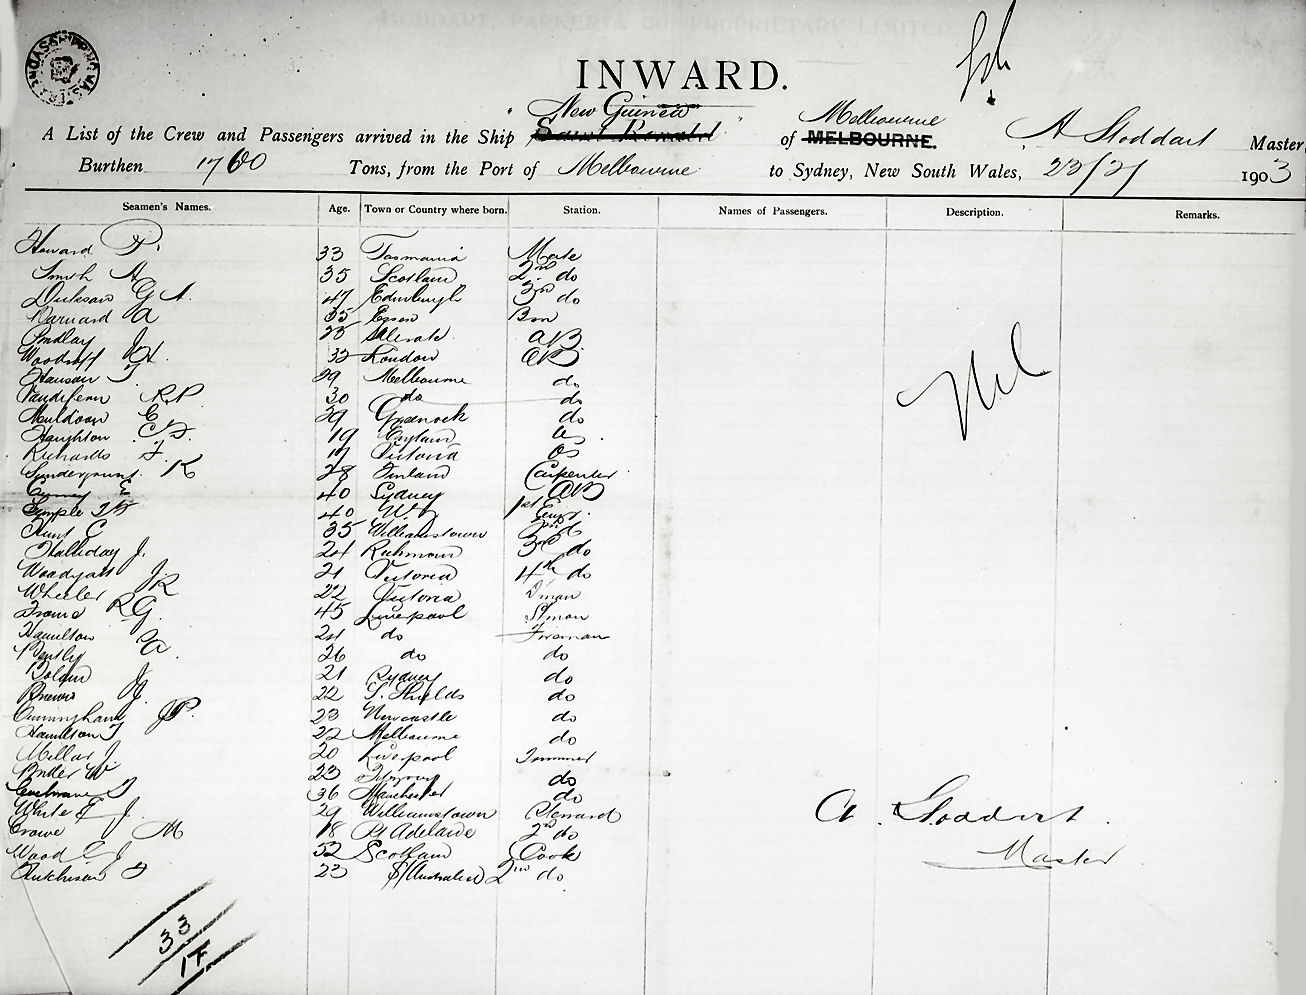 INWARD.
New Guinea
A List of the Crew and Passengers arrived in the Ship Saint Ronald of MELBOURNE. Melbourne A Stoddart Master
Burthen 1760 Tons, from the Port of Melbourne to Sydney, New South Wales, 23/2/ 1903
Seamen's Names. Age. Town or Country where born. Station. Names of Passengers. Description. Remarks.
Howard P. 33 Tasmania Mate
Smith A 35 Scotland 2nd do
Dickson G A. 47 Edinburgh 3rd do
Barnard A 35 Essex Bsn
Findlay J 25 AB
Woodruff H. 33 London AB
Hanson T 29 Melbourne do
R.P. 30 do do
Muldoon E 39 Greenock do
Houghton 19 England OS
Richards F. 17 Victoria OS
K 28 Finland Carpenter
E 40 Sydney AB
40 1st Engr.
Hunt C 35 Williamstown 2nd do
Halliday J. 24 Richmond 3rd do
Woodyatt J 21 Victoria 4th do
Wheeler JR 22 Victoria
R.G. 45 Liverpool
Hamilton 24 do Fireman
Bently A 26 do do
Bolam J 21 Sydney do
J. 22 S. Shields do
Cunningham JP. 23 Newcastle do
Hamilton T 22 Melbourne do
Millar J 20 Liverpool Trimmer
Butler W 23 Fitzroy do
Cochrane T 36 Manchester do
White E J. 29 Williamstown Steward
Crowe M 18 Pt Adelaide 2nd do
Wood C J 52 Scotland Cook
Hutchison T 23 S/Australia 2nd do
Nil
A. Stoddart.
Master
33
1F